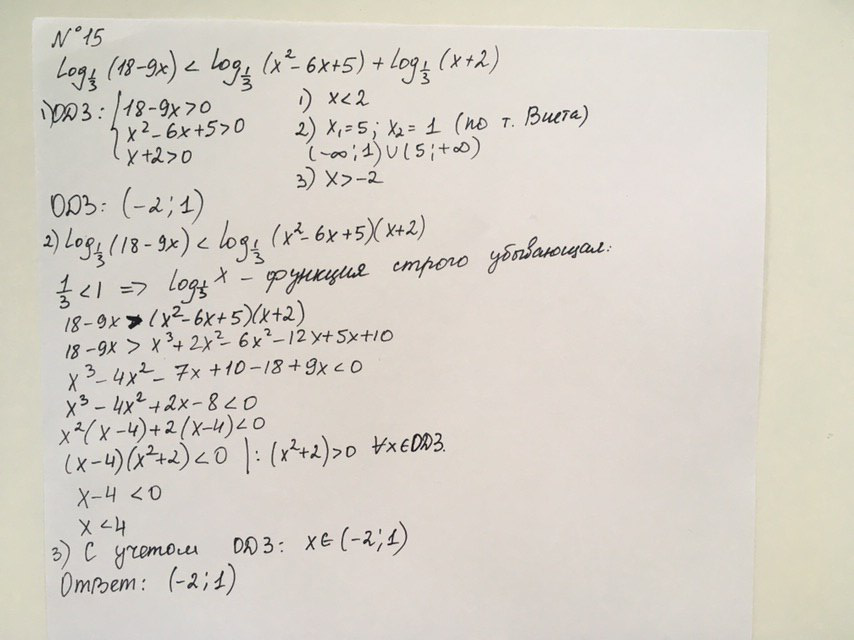 N°15
log_{1/3} (18-9x) < log_{1/3} (x²-6x+5) + log_{1/3} (x+2)
1) ОДЗ: { 18-9x>0   1) x<2
x²-6x+5>0   2) x₁=5; x₂=1 (по т. Виета)
(-∞;1)∪(5;+∞)
x+2>0   3) x>-2
ОДЗ: (-2;1)
2) log_{1/3} (18-9x) < log_{1/3} (x²-6x+5)(x+2)
1/3 <1 => log_{1/3} x - функция строго убывающая:
18-9x > (x²-6x+5)(x+2)
18-9x > x³+2x²-6x²-12x+5x+10
x³-4x²-7x+10-18+9x<0
x³-4x²+2x-8<0
x²(x-4)+2(x-4)<0
(x-4)(x²+2)<0 |: (x²+2)>0 ∀x∈ОДЗ.
x-4 <0
x <4
3) С учетом ОДЗ: x∈(-2;1)
Ответ: (-2;1)